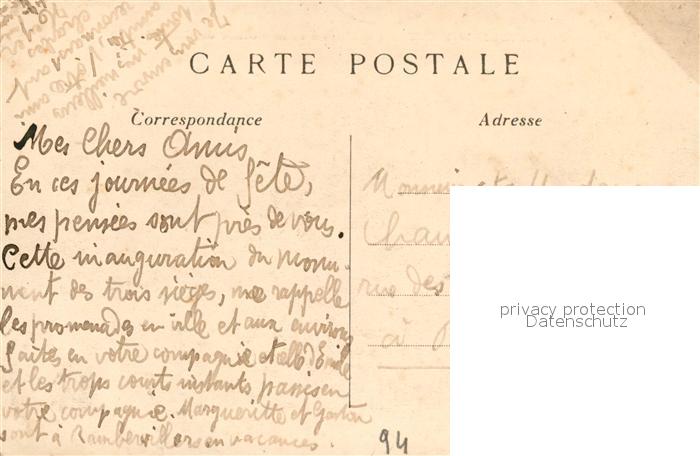 CARTE POSTALE
Correspondance
Adresse
Mes Chers Amis
En ces journées de fête,
mes pensées sont près de vous.
Cette inauguration du monu-
ment des trois sièges, me rappelle
les promenades en ville et aux environs
faites en votre compagnie et celle d'Emile
et les trops courts instants passés en
votre compagnie. Margueritte et Gaston
sont à Rambervillers en vacances.
Je vous envoie
meilleurs
amitiés
Votre ami
Monsieur et
rue des
à
94
privacy protection
Datenschutz